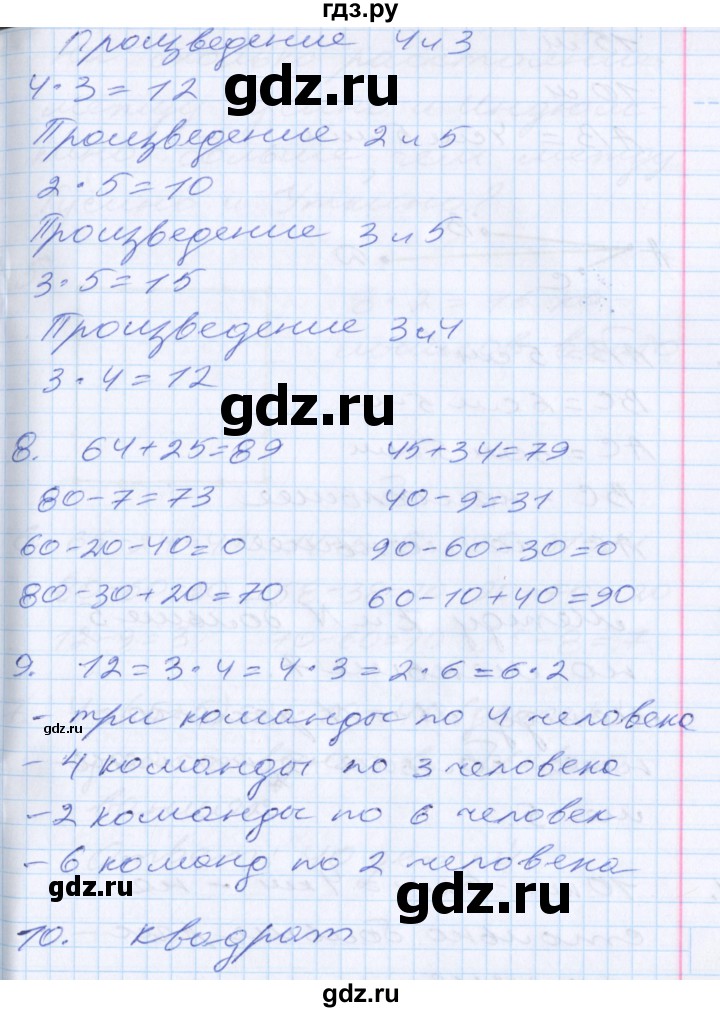 гдз.ру
Произведение 4 и 3
4·3=12
gdz.ru
Произведение 2 и 5
2·5=10
Произведение 3 и 5
3·5=15
Произведение 3 и 4
3·4=12
gdz.ru
8. 64+25=89 45+34=79
80-7=73 40-9=31
60-20-40=0 90-60-30=0
80-30+20=70 60-10+40=90
9. 12=3·4=4·3=2·6=6·2
- три команды по 4 человека
gdz.ru
- 4 команды по 3 человека
gdz.ru
- 2 команды по 6 человек
- 6 команд по 2 человека
gdz.ru
gdz.ru
10. квадрат
gdz.ru
gdz.ru